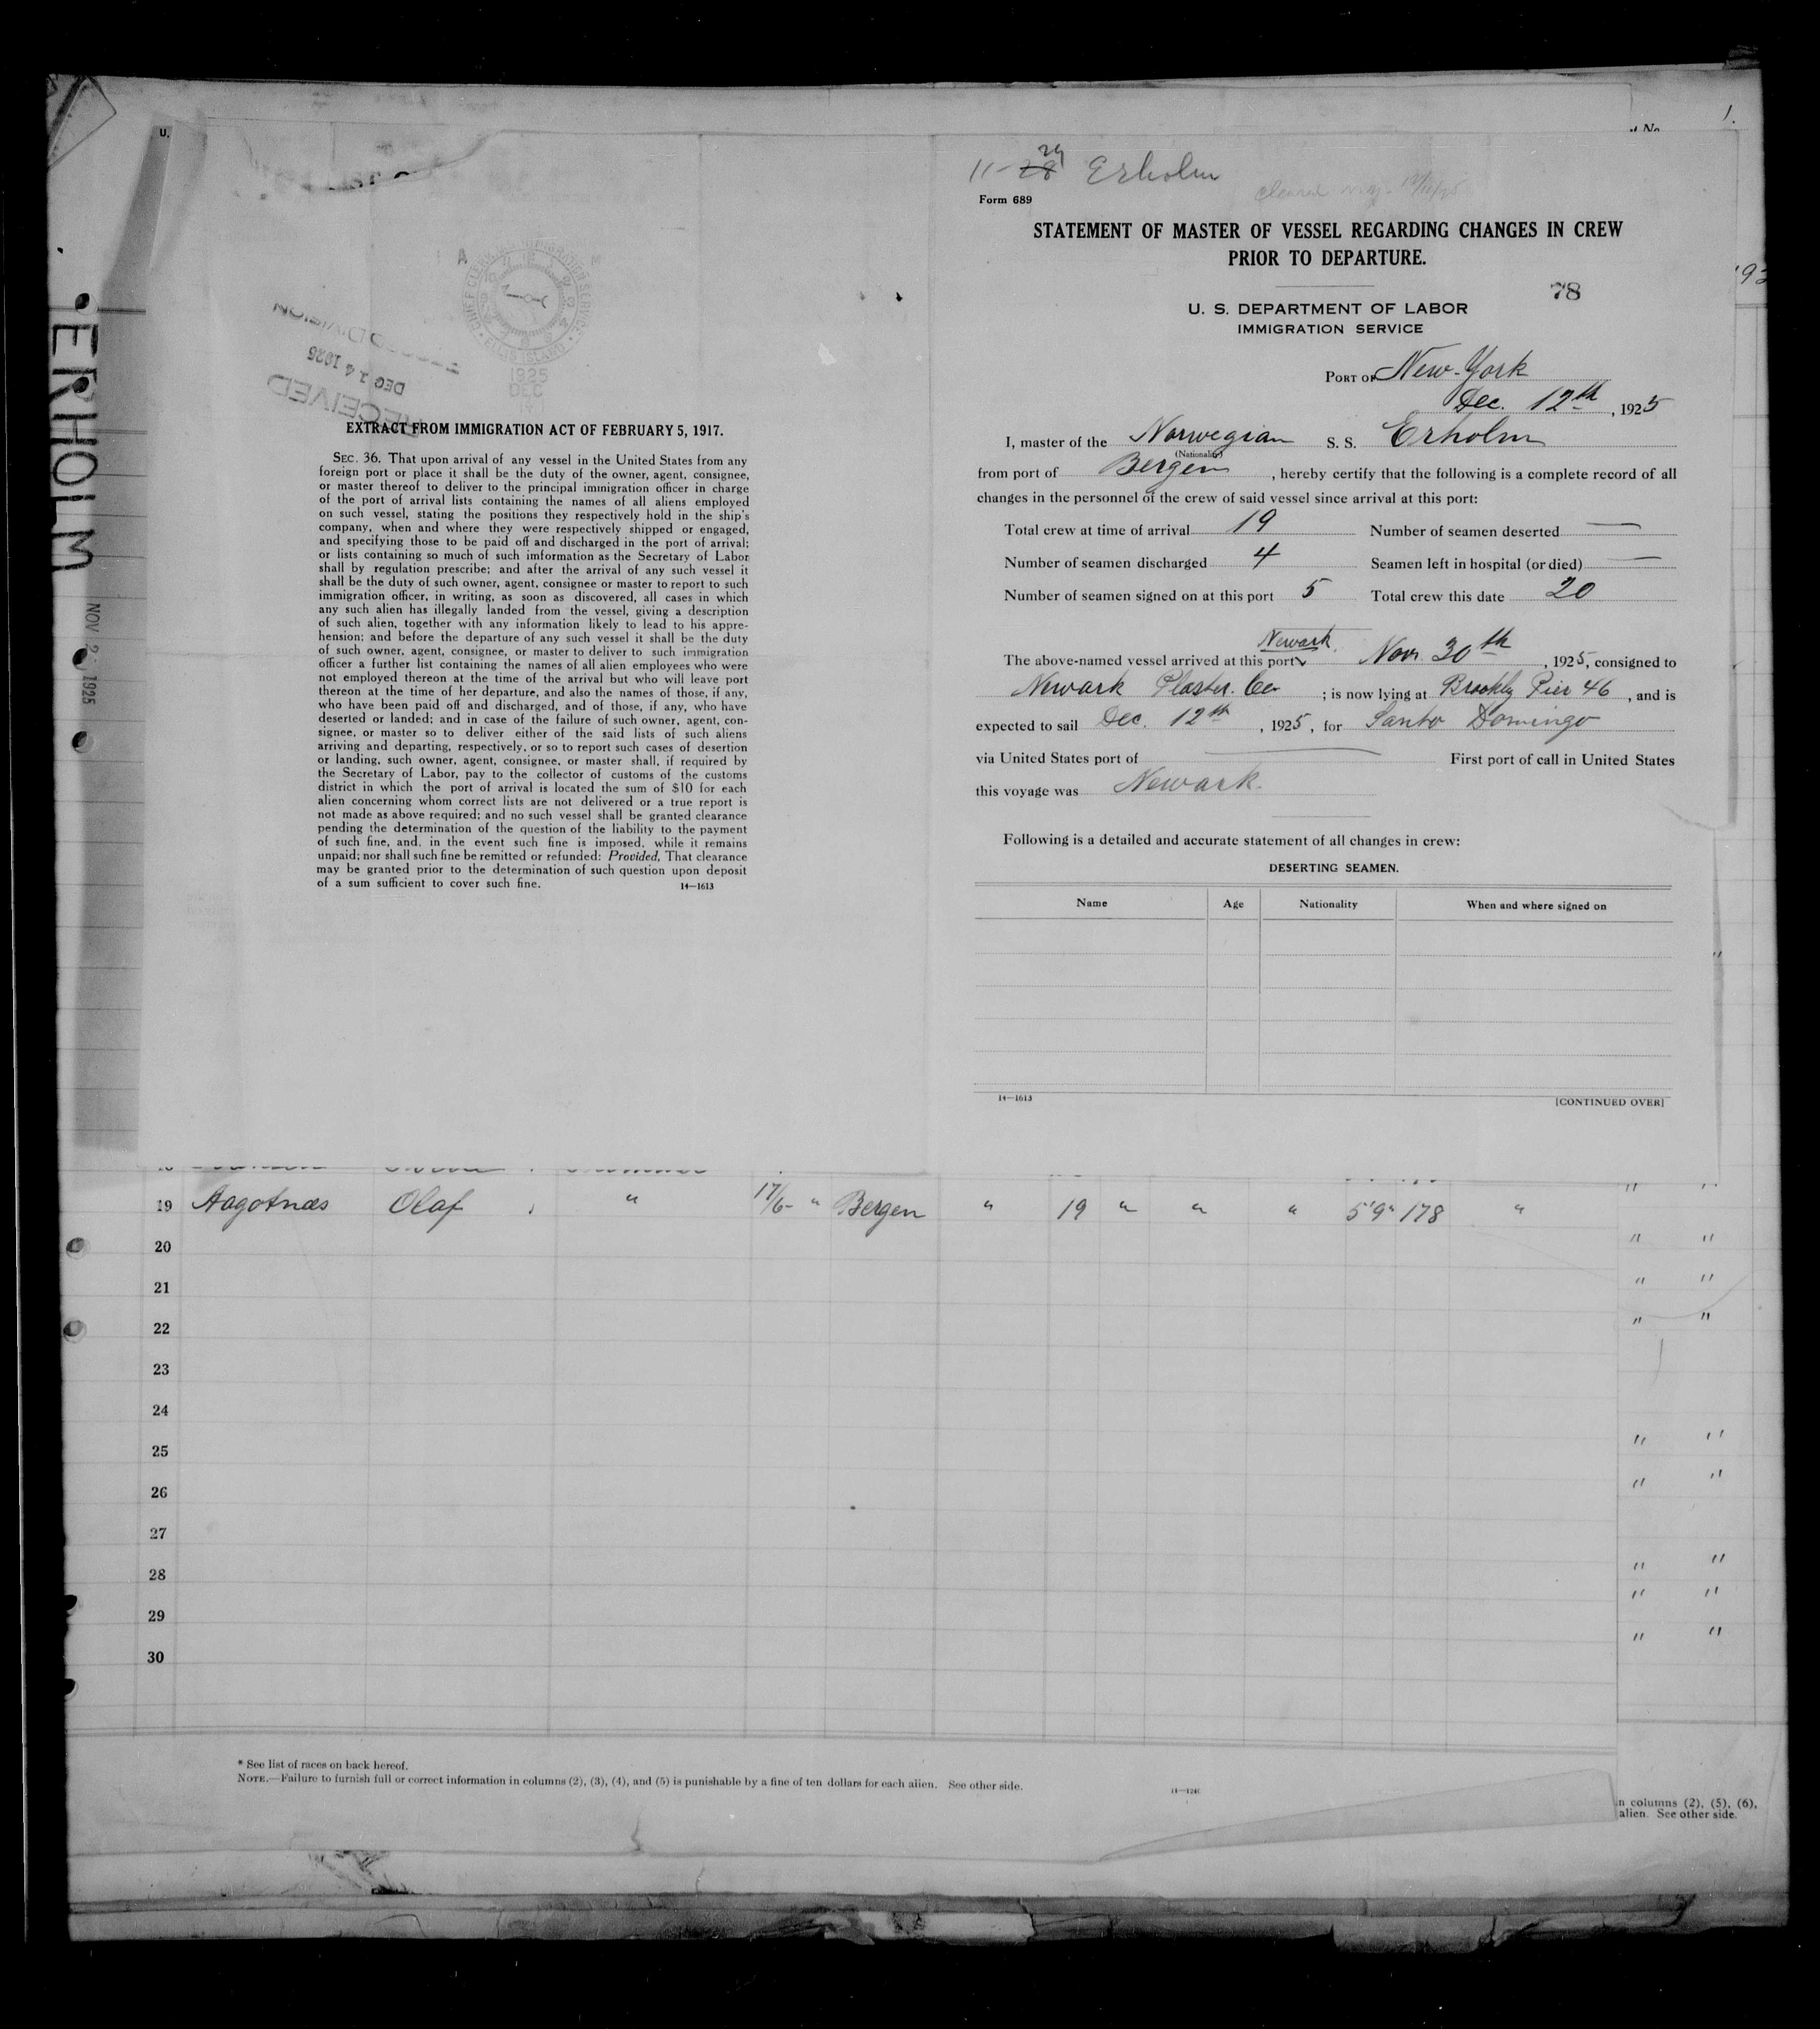 U.
1.
ERHOLM
1925
11-28 29 Erholm
Form 689
STATEMENT OF MASTER OF VESSEL REGARDING CHANGES IN CREW
PRIOR TO DEPARTURE.
78
U. S. DEPARTMENT OF LABOR
IMMIGRATION SERVICE
PORT OF New-York
Dec. 12th, 1925
I, master of the Norwegian S. S. Erholm
(Nationality)
from port of Bergen, hereby certify that the following is a complete record of all
changes in the personnel of the crew of said vessel since arrival at this port:
Total crew at time of arrival 19 Number of seamen deserted —
Number of seamen discharged 4 Seamen left in hospital (or died) —
Number of seamen signed on at this port 5 Total crew this date 20
Newark
The above-named vessel arrived at this port Nov. 30th, 1925, consigned to
Newark Plaster. Co ; is now lying at Brookly Pier 46, and is
expected to sail Dec. 12th, 1925, for Santo Domingo
via United States port of — First port of call in United States
this voyage was Newark.
Following is a detailed and accurate statement of all changes in crew:
DESERTING SEAMEN.
Name Age Nationality When and where signed on
14—1613 [CONTINUED OVER]
CHIEF CLERK IMMIGRATION SERVICE
ELLIS ISLAND
1925
DEC
RECEIVED
DEC 14 1925
DIVISION
EXTRACT FROM IMMIGRATION ACT OF FEBRUARY 5, 1917.
SEC. 36. That upon arrival of any vessel in the United States from any
foreign port or place it shall be the duty of the owner, agent, consignee,
or master thereof to deliver to the principal immigration officer in charge
of the port of arrival lists containing the names of all aliens employed
on such vessel, stating the positions they respectively hold in the ship's
company, when and where they were respectively shipped or engaged,
and specifying those to be paid off and discharged in the port of arrival;
or lists containing so much of such imformation as the Secretary of Labor
shall by regulation prescribe; and after the arrival of any such vessel it
shall be the duty of such owner, agent, consignee or master to report to such
immigration officer, in writing, as soon as discovered, all cases in which
any such alien has illegally landed from the vessel, giving a description
of such alien, together with any information likely to lead to his appre-
hension; and before the departure of any such vessel it shall be the duty
of such owner, agent, consignee, or master to deliver to such immigration
officer a further list containing the names of all alien employees who were
not employed thereon at the time of the arrival but who will leave port
thereon at the time of her departure, and also the names of those, if any,
who have been paid off and discharged, and of those, if any, who have
deserted or landed; and in case of the failure of such owner, agent, con-
signee, or master so to deliver either of the said lists of such aliens
arriving and departing, respectively, or so to report such cases of desertion
or landing, such owner, agent, consignee, or master shall, if required by
the Secretary of Labor, pay to the collector of customs of the customs
district in which the port of arrival is located the sum of $10 for each
alien concerning whom correct lists are not delivered or a true report is
not made as above required; and no such vessel shall be granted clearance
pending the determination of the question of the liability to the payment
of such fine, and, in the event such fine is imposed, while it remains
unpaid; nor shall such fine be remitted or refunded: Provided, That clearance
may be granted prior to the determination of such question upon deposit
of a sum sufficient to cover such fine. 14—1613
19 Aagotnæs Olaf " 17/6- " Bergen " 19 " " " 5'9" 178 "
20
21
22
23
24
25
26
27
28
29
30
* See list of races on back hereof.
NOTE.—Failure to furnish full or correct information in columns (2), (3), (4), and (5) is punishable by a fine of ten dollars for each alien. See other side.
n columns (2), (5), (6),
alien. See other side.